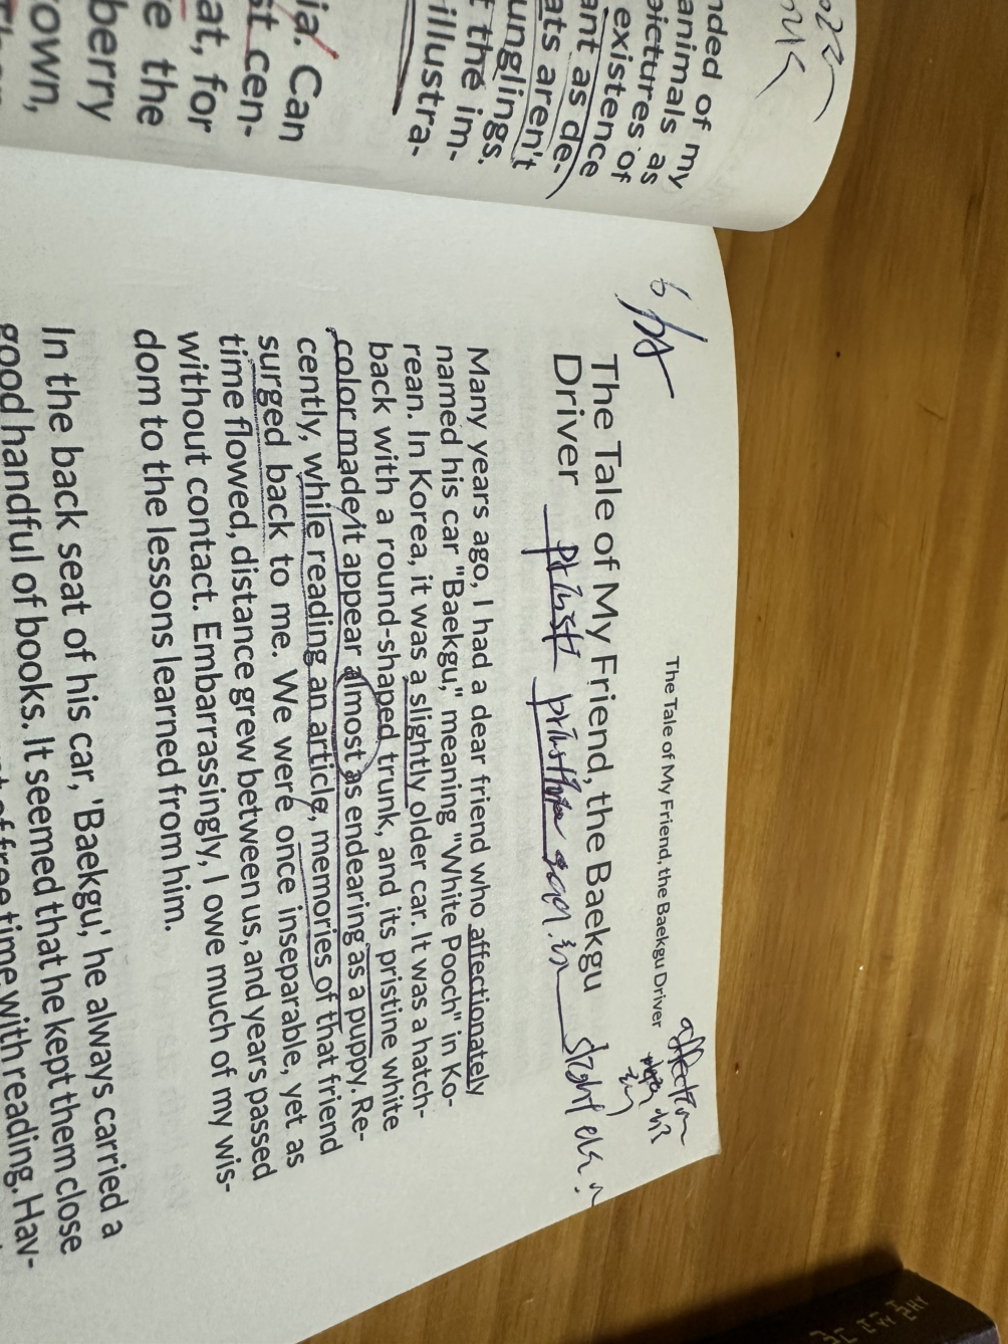 nded of my
animals as
pictures of
existence of
ant as de-
ats aren't
unglings.
f the im-
illustra-
ia. Can
st cen-
at, for
e the
berry
own,
The Tale of My Friend, the Baekgu Driver
affection
The Tale of My Friend, the Baekgu
Driver
Many years ago, I had a dear friend who affectionately
named his car "Baekgu," meaning "White Pooch" in Ko-
rean. In Korea, it was a slightly older car. It was a hatch-
back with a round-shaped trunk, and its pristine white
color made it appear almost as endearing as a puppy. Re-
cently, while reading an article, memories of that friend
surged back to me. We were once inseparable, yet as
time flowed, distance grew between us, and years passed
without contact. Embarrassingly, I owe much of my wis-
dom to the lessons learned from him.
In the back seat of his car, 'Baekgu,' he always carried a
good handful of books. It seemed that he kept them close
of free time with reading. Hav-